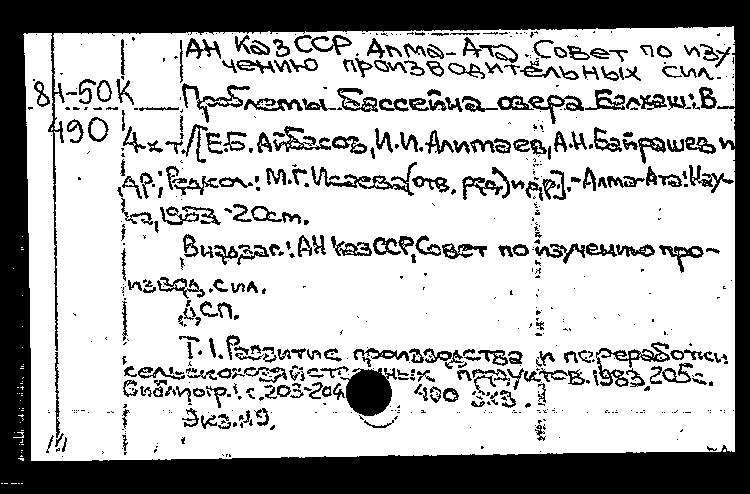 АН КазССР. Алма-Ата. Совет по изу-
чению производительных сил.
84-50К
Проблемы бассейна озера Балхаш: В
490
4-х т./[Е.Б. Айбасов, И.И. Алимаев, А.Н. Байрашев и
др.; Редкол.: М.Г. Исаева (отв. ред.) и др.].-Алма-Ата: Нау-
ка, 1983 -20см.
В надзаг.: АН КазССР, Совет по изучению про-
извод. сил.
ДСП.
Т. 1. Развитие производства и переработки
сельскохозяйственных продуктов. 1983, 205с.
Библиогр.: с. 203-204 490 экз.
Экз. 49.